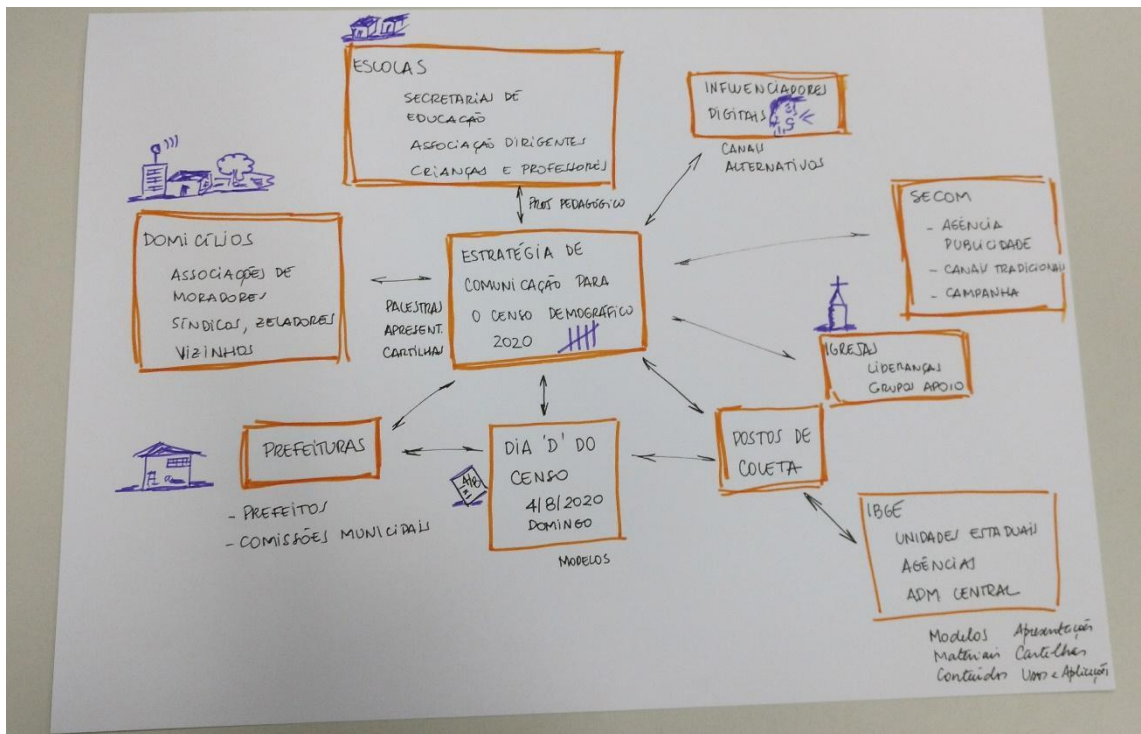 ESCOLAS
SECRETARIAS DE
EDUCAÇÃO
ASSOCIAÇÃO DIRIGENTES
CRIANÇAS E PROFESSORES
PROJ PEDAGÓGICO
INFLUENCIADORES
DIGITAIS
CANAIS
ALTERNATIVOS
DOMICÍLIOS
ASSOCIAÇÕES DE
MORADORES
SÍNDICOS, ZELADORES
VIZINHOS
PALESTRAS
APRESENT.
CARTILHAS
ESTRATÉGIA DE
COMUNICAÇÃO PARA
O CENSO DEMOGRÁFICO
2020
SECOM
- AGÊNCIA
PUBLICIDADE
- CANAIS TRADICIONAIS
- CAMPANHA
IGREJAS
LIDERANÇAS
GRUPOS APOIO
PREFEITURAS
- PREFEITOS
- COMISSÕES MUNICIPAIS
DIA 'D' DO
CENSO
4/8/2020
DOMINGO
MODELOS
POSTOS DE
COLETA
IBGE
UNIDADES ESTADUAIS
AGÊNCIAS
ADM CENTRAL
Modelos Apresentações
Materiais Cartilhas
Conteúdos Usos e Aplicações